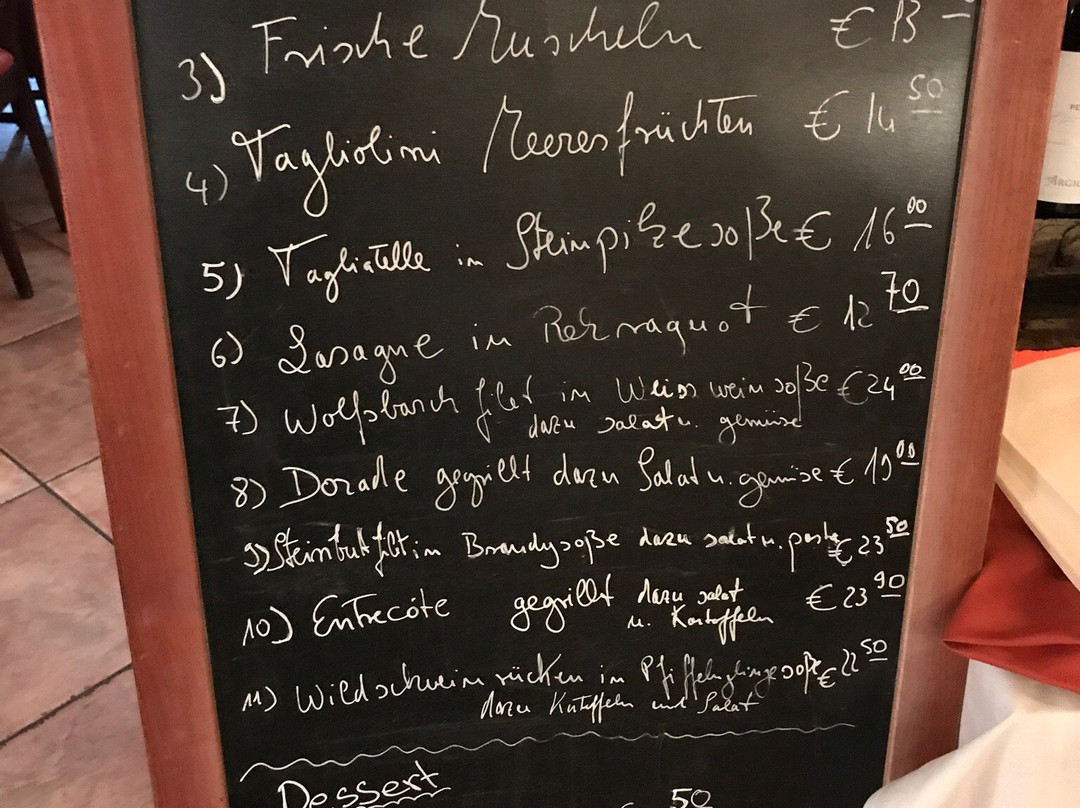 3) Frische Muscheln € 13 –
4) Tagliolini Meeresfrüchten € 14 50
5) Tagliatelle in Steinpilzesoße € 16 00
6) Lasagne in Rehraguot € 12 70
7) Wolfsbarsch filet in Weisswein soße € 24 00
dazu salat u. gemüse
8) Dorade gegrillt dazu Salat u. gemüse € 19 00
9) Steinbutt filt in Brandysoße dazu salat u. pasta € 23 50
10) Entrecôte gegrillt dazu salat € 23 90
u. Kartoffeln
11) Wildschweinrücken in Pfifferlingesoße € 22 50
dazu Kartoffeln und Salat
Dessert
50